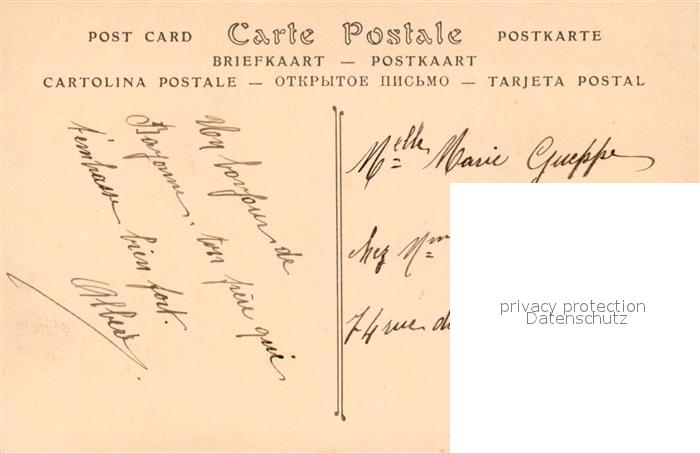 POST CARD Carte Postale POSTKARTE
BRIEFKAART — POSTKAART
CARTOLINA POSTALE — ОТКРЫТОЕ ПИСЬМО — TARJETA POSTAL
Un bonjour de
Bayonne. ton frère qui
t'embrasse bien fort.
Albert.
Melle Marie Gueppe
chez Mm
74 rue d
privacy protection
Datenschutz